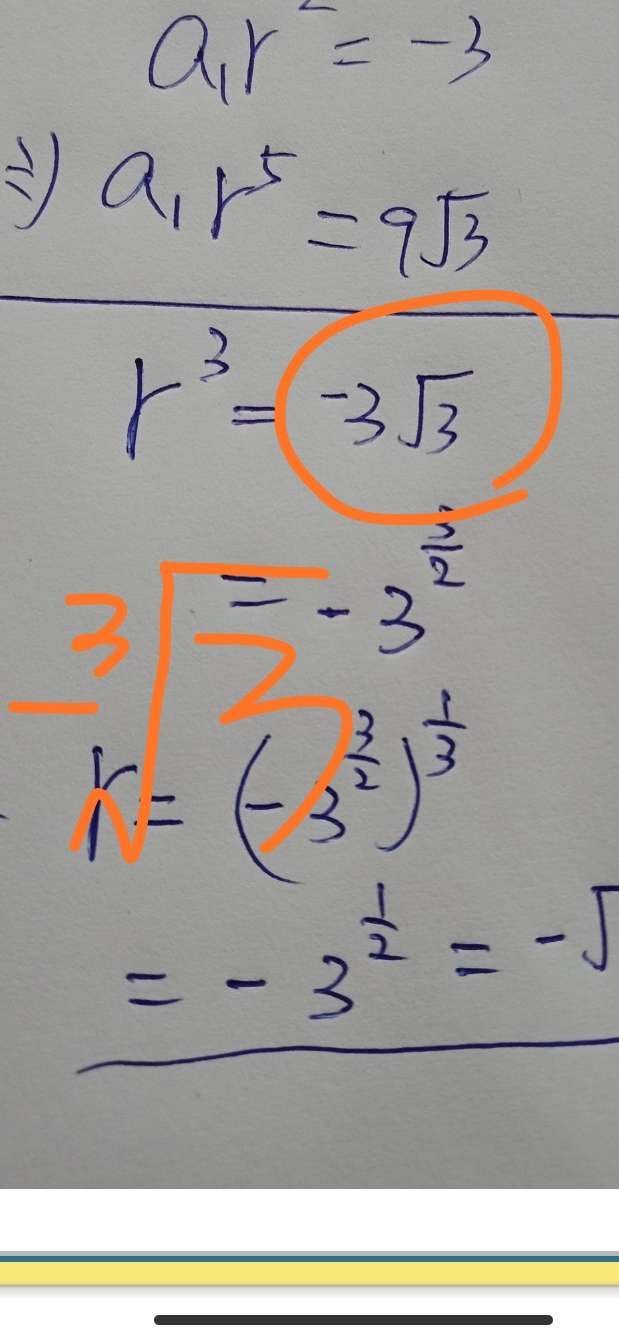 a₁r² = -3
⇒) a₁r⁵ = 9√3
r³ = -3√3
= -3^(3/2)
-³√3
r = (-3^(3/2))^(1/3)
= -3^(1/2) = -√